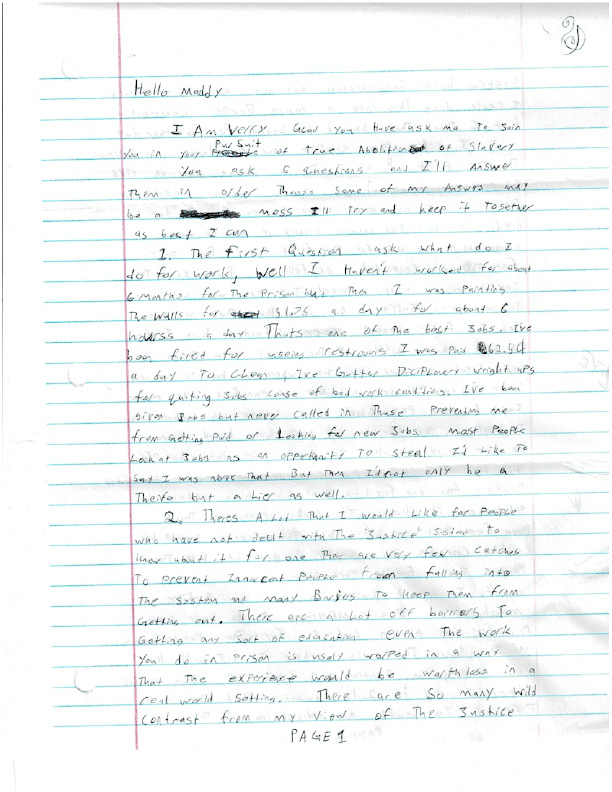 Hello Maddy
I Am Verry Glad you Have ask me To Join
you in your Pursuit of True Abolition of Slavery
You ask 5 Questions and I'll Answer
Them in order Though Some of my Answrs may
be a mess Ill Try and keep it Together
as best I can
1. The first Question ask what do I
do for work, well I Haven't worked for about
6 months for The Prison but Then I was Painting
The walls for $1.25 a day for about 6
hourss a day Thats one of The best Jobs. Ive
been fired for useing restrooms I was Paid
a day To Clean, Ive Gotten Diciplinery wright ups
for quiting Jobs cause of bad work conditions. Ive been
given Jobs but never called in Those Preventing me
from Getting Paid or Looking for new Jobs. Most People
Look at Jobs as an opportunity To Steal I'd Like To
Say I was above That But Then I'd not only be a
Theife but a Lier as well.
2. Theres A Lot That I would Like for People
who have not dealt with The "Justice" System To
know about it for one Ther are very few Catches
To Prevent Innocent People from falling into
The System nd many Barries To keep Them from
Getting out. There are a Lot off barriors To
Getting any Sort of education even The work
you do in Prison is usaly worped in a way
That The experience would be worthless in a
real world Setting. There are So many wild
Contrast from my view of The Justice
PAGE 1